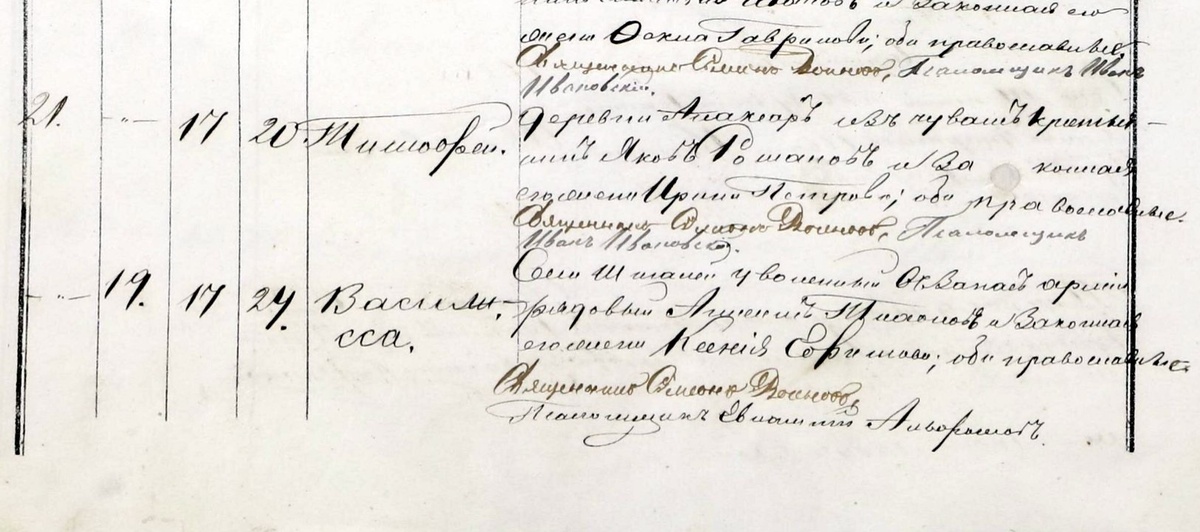 жена его Фекла Гаврилова; оба православные.
Священник Симеонъ Воиновъ, Псаломщикъ Иванъ
Ивановскій.
21. -„- 17 20 Тимофей. деревни изъ чувашъ крестья-
нинъ Яковъ Романовъ и законная
его жена Ирина Петрова; оба православные.
Священникъ Симеонъ Воиновъ, Псаломщикъ
Иванъ Ивановскій.
-„- 19. 17 24. Васили- Села уволенный въ запасъ арміи
сса. рядовый Платоновъ и законная
его жена Ксенія Ефимова; оба православные.
Священникъ Симеонъ Воиновъ,
Псаломщикъ Евлампій